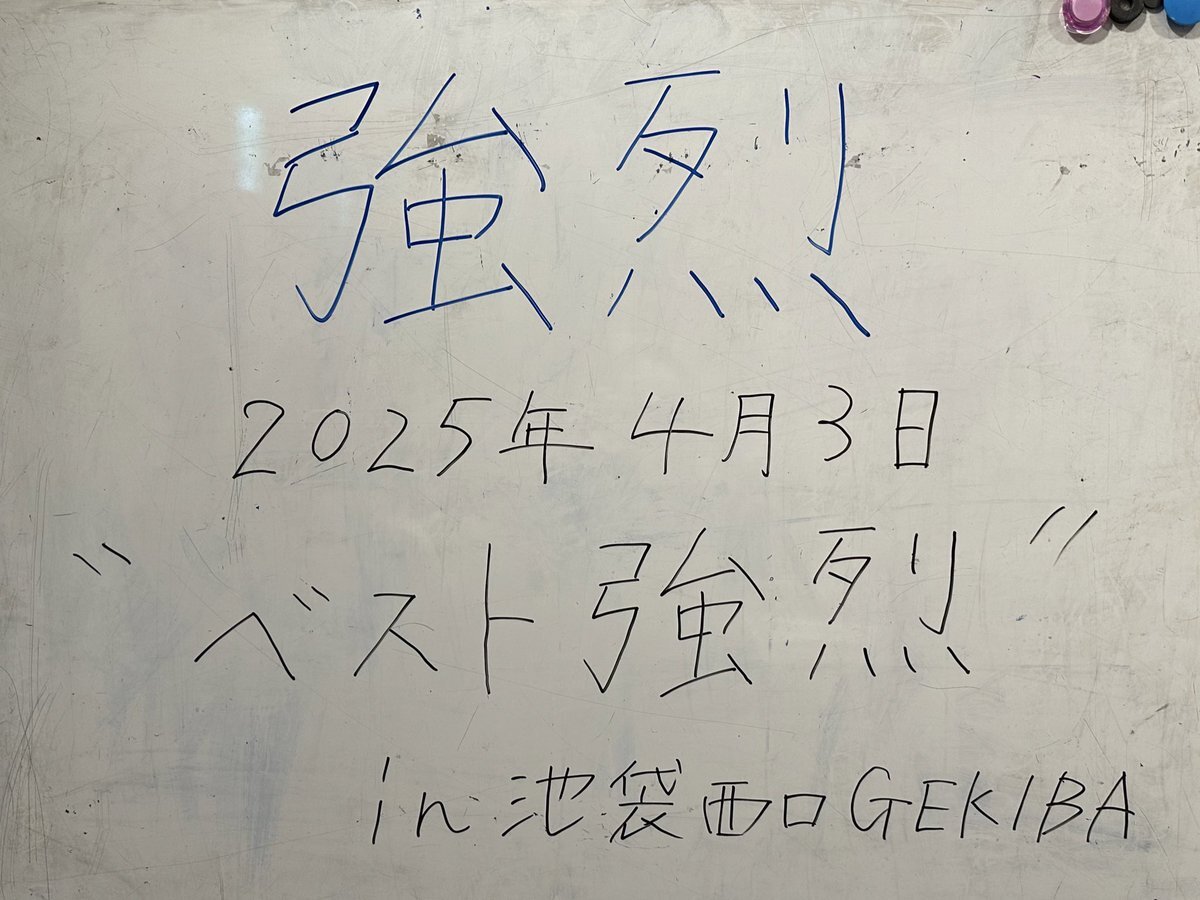 強烈
2025年4月3日
"ベスト強烈"
in 池袋西口GEKIBA